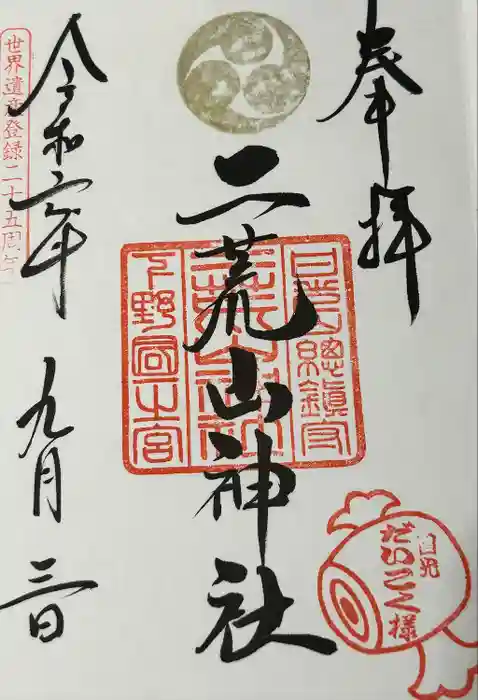 奉拝
日光山總鎮守
二荒山神社
二荒山神社
下野國一之宮
令和六年
九月
三日
世界遺産登録二十五周年
日光
だいこく様